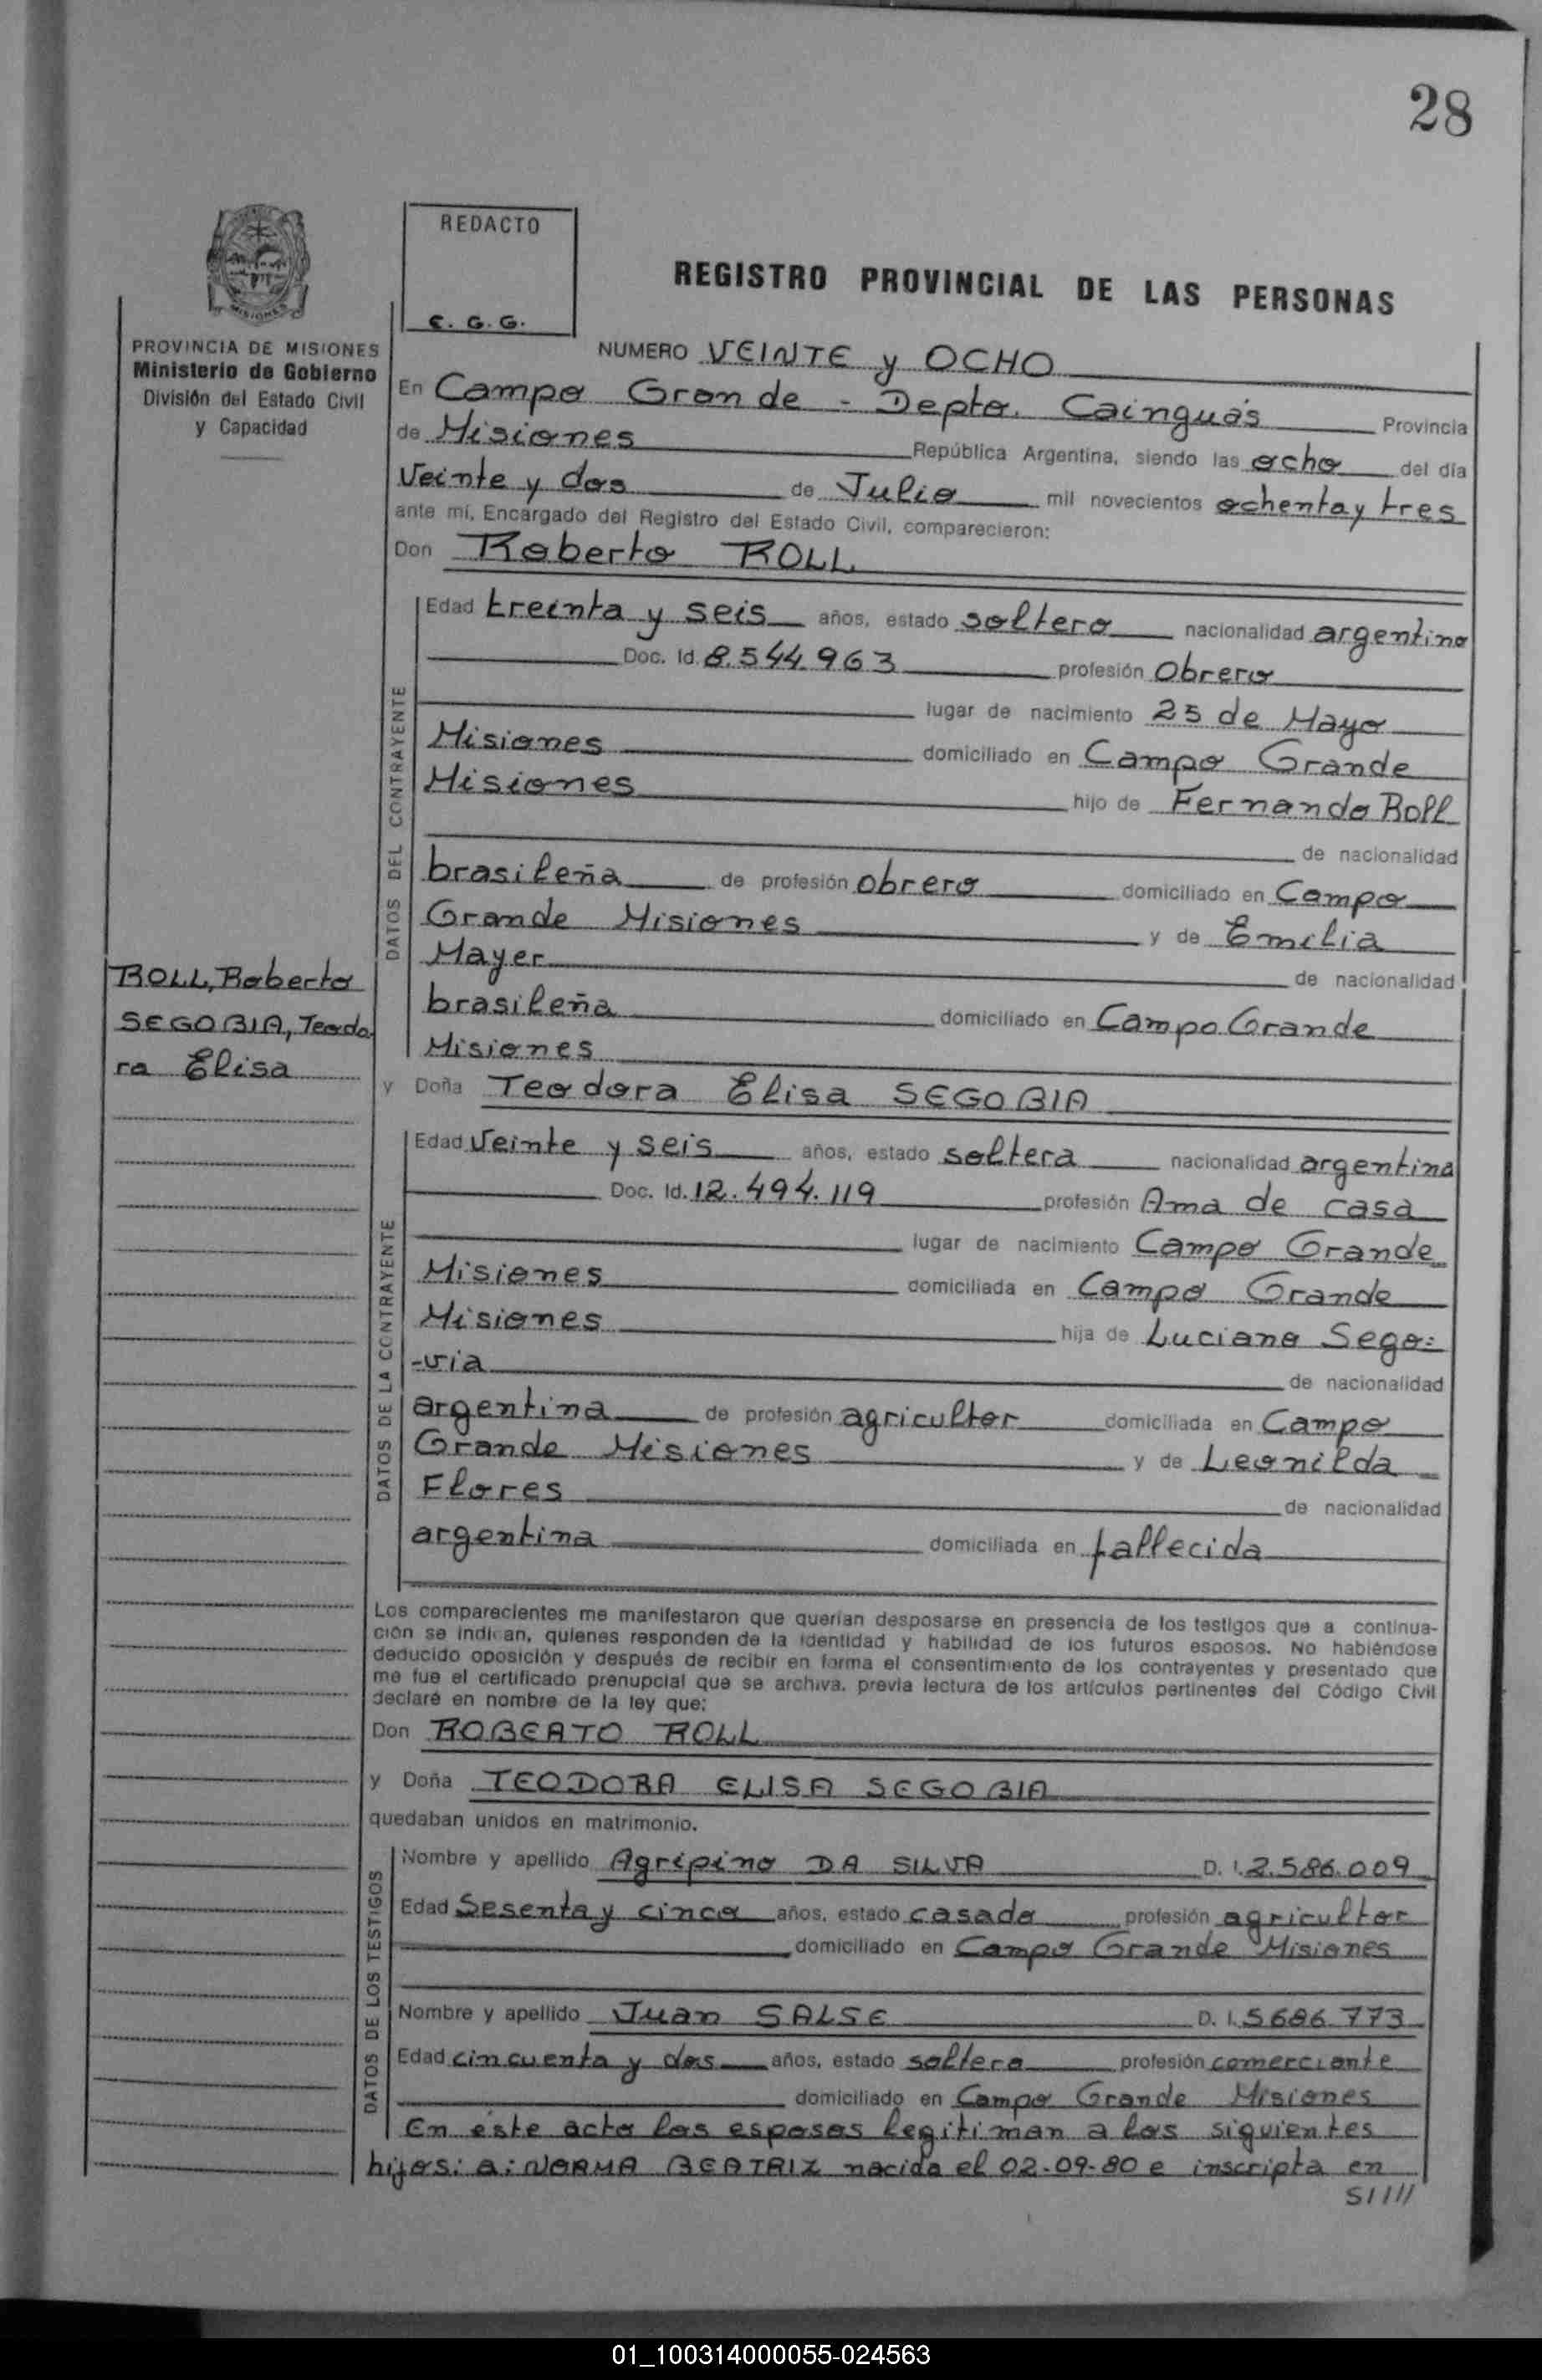 28
REDACTO
C. G. G.
REGISTRO PROVINCIAL DE LAS PERSONAS
MISIONES
PROVINCIA DE MISIONES
Ministerio de Gobierno
División del Estado Civil
y Capacidad
NUMERO VEINTE y OCHO
En Campo Grande - Depto. Cainguás Provincia
de Misiones República Argentina, siendo las ocho del día
Veinte y dos de Julio mil novecientos ochenta y tres
ante mí, Encargado del Registro del Estado Civil, comparecieron:
Don Roberto ROLL
DATOS DEL CONTRAYENTE
Edad treinta y seis años, estado soltero nacionalidad argentino
Doc. Id. 8.544.963 profesión Obrero
lugar de nacimiento 25 de Mayo
Misiones domiciliado en Campo Grande
Misiones hijo de Fernando Roll
de nacionalidad
brasileña de profesión obrero domiciliado en Campo
Grande Misiones y de Emilia
Mayer de nacionalidad
brasileña domiciliado en Campo Grande
Misiones
ROLL, Roberto
SEGOBIA, Teodo-
ra Elisa
y Doña Teodora Elisa SEGOBIA
DATOS DE LA CONTRAYENTE
Edad Veinte y seis años, estado soltera nacionalidad argentina
Doc. Id. 12.494.119 profesión Ama de casa
lugar de nacimiento Campo Grande
Misiones domiciliada en Campo Grande
Misiones hija de Luciano Sego=
-via de nacionalidad
argentina de profesión agricultor domiciliada en Campo
Grande Misiones y de Leonilda
Flores de nacionalidad
argentina domiciliada en fallecida
Los comparecientes me manifestaron que querían desposarse en presencia de los testigos que a continua-
ción se indican, quienes responden de la identidad y habilidad de los futuros esposos. No habiéndose
deducido oposición y después de recibir en forma el consentimiento de los contrayentes y presentado que
me fue el certificado prenupcial que se archiva, previa lectura de los artículos pertinentes del Código Civil
declaré en nombre de la ley que:
Don ROBERTO ROLL
y Doña TEODORA ELISA SEGOBIA
quedaban unidos en matrimonio.
DATOS DE LOS TESTIGOS
Nombre y apellido Agripino DA SILVA D. I. 2.586.009
Edad Sesenta y cinco años, estado casado profesión agricultor
domiciliado en Campo Grande Misiones
Nombre y apellido Juan SALSE D. I. 5686.773
Edad cincuenta y dos años, estado soltero profesión comerciante
domiciliado en Campo Grande Misiones
En éste acto los esposos legitiman a los siguientes
hijos: a: NORMA BEATRIZ nacida el 02-09-80 e inscripta en
S/////
01_100314000055-024563